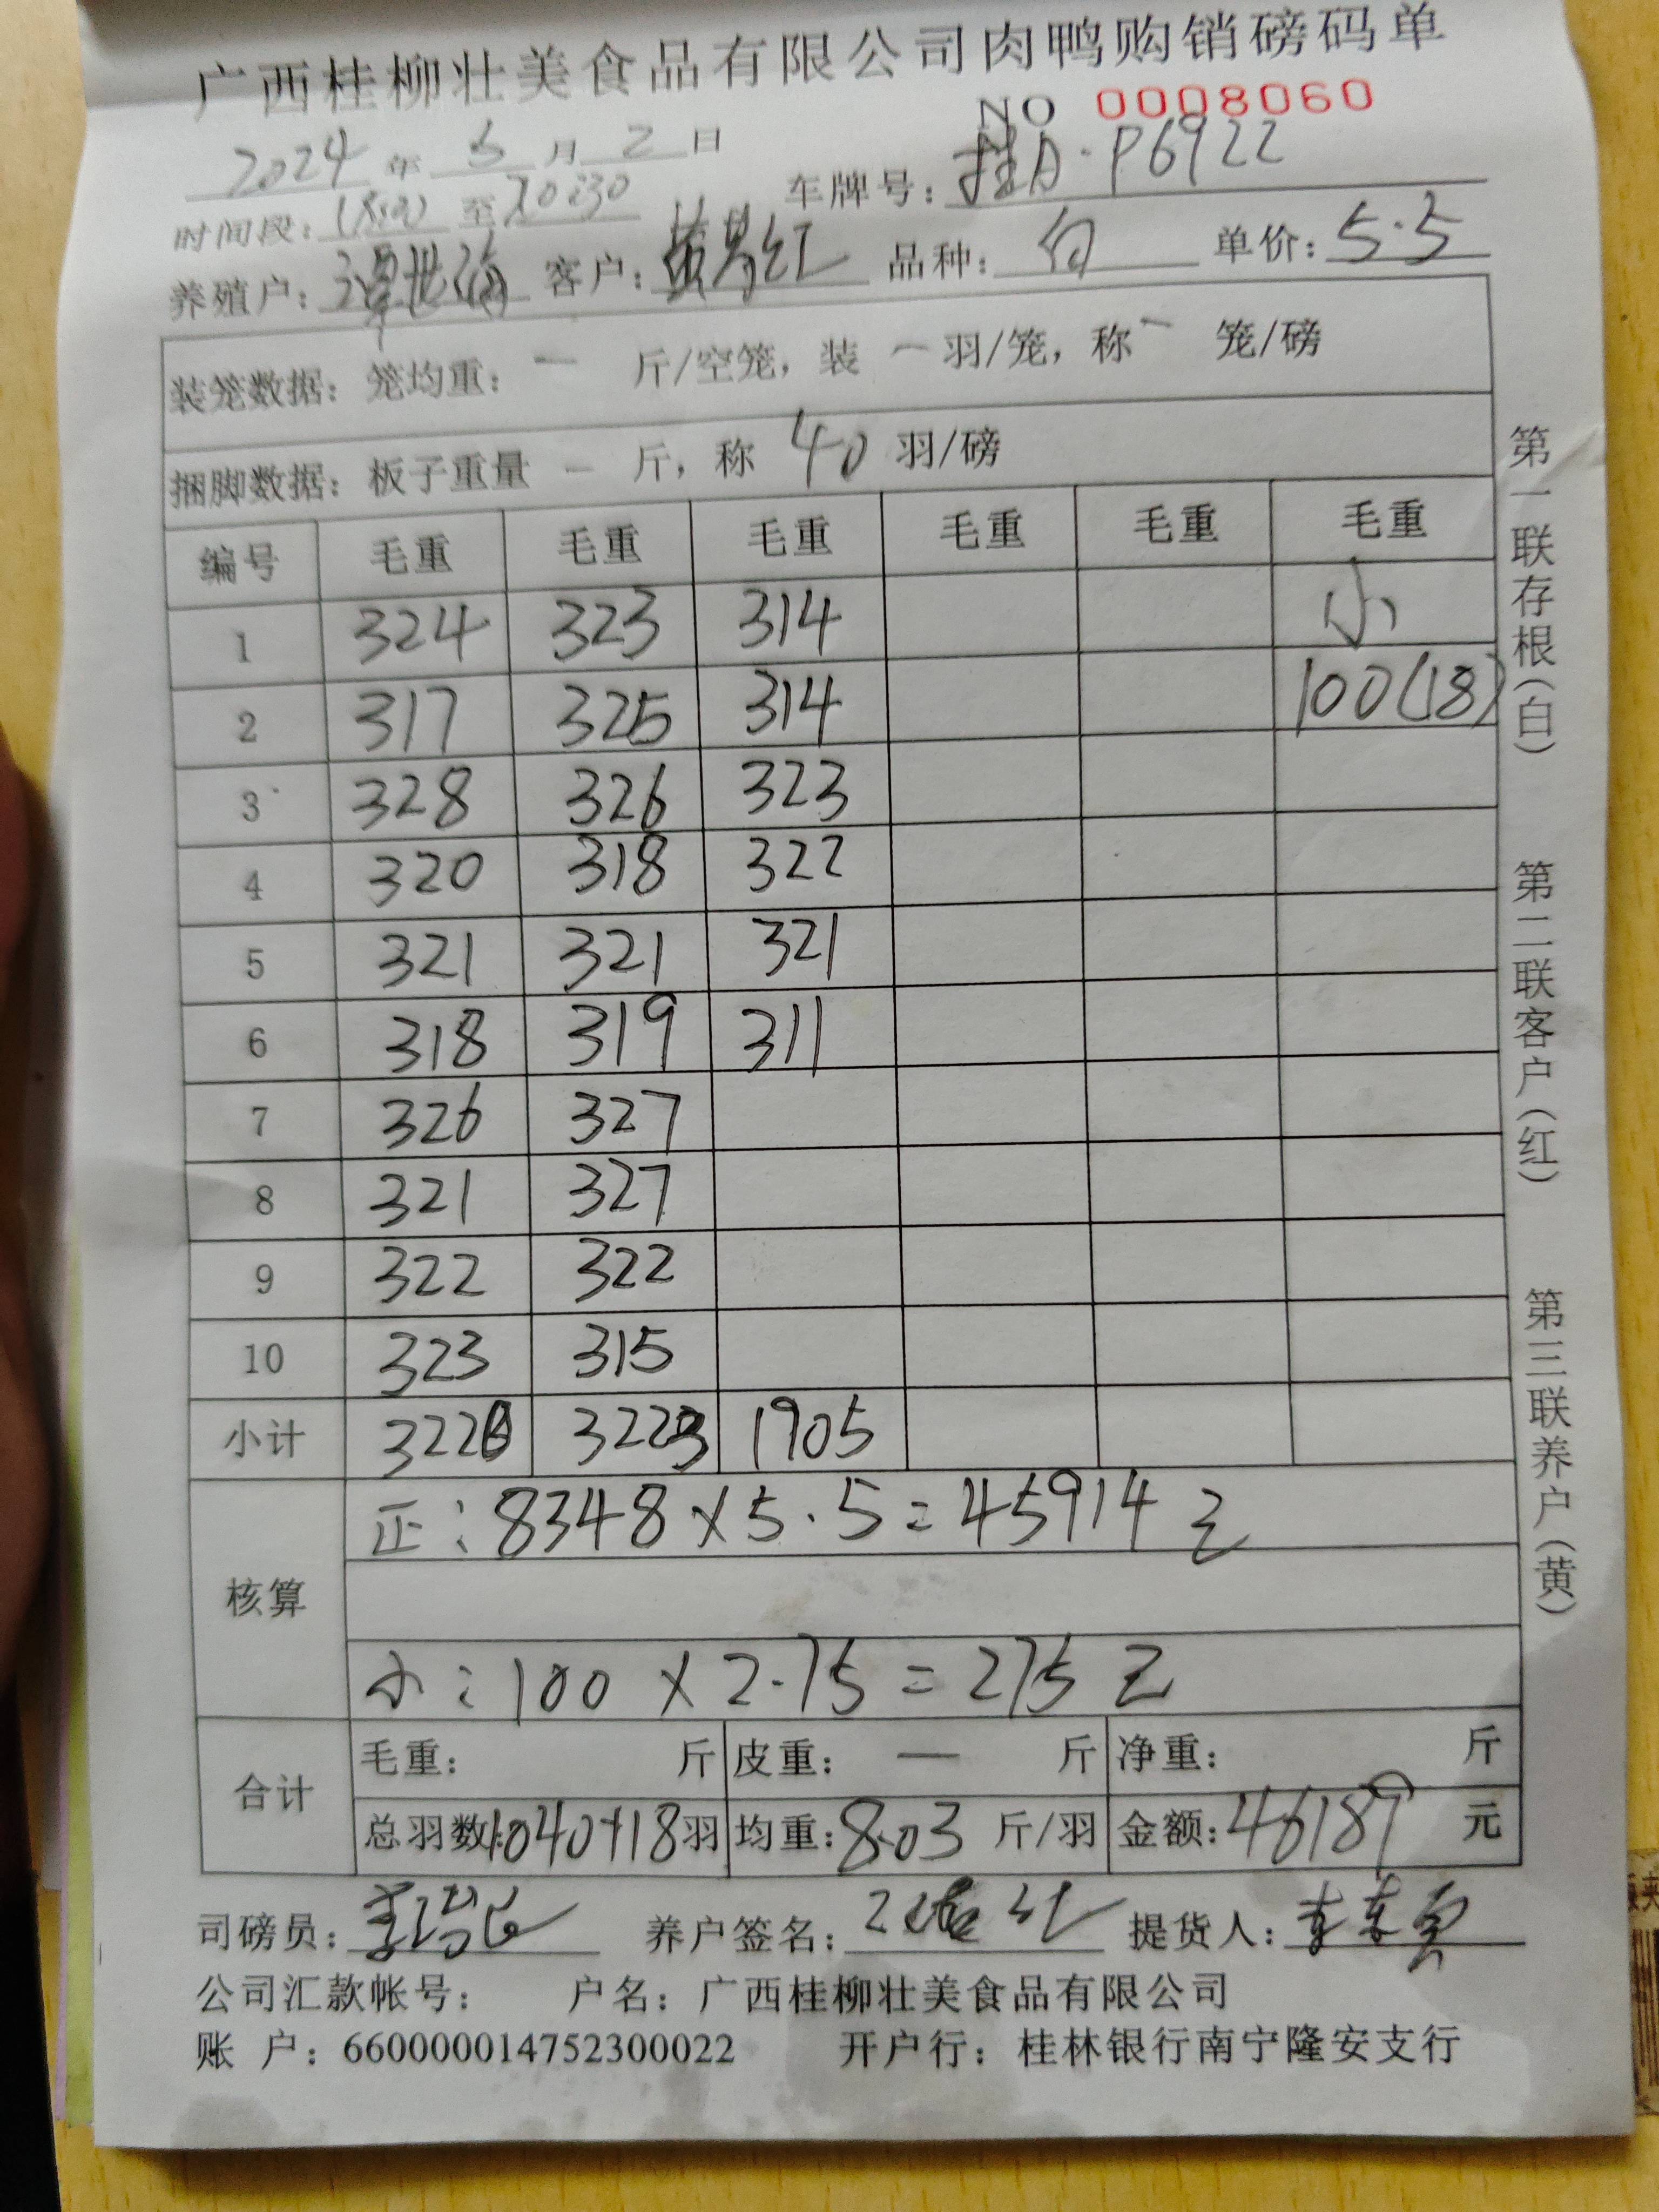 广西桂柳壮美食品有限公司肉鸭购销磅码单
NO 0008060
2024 年 5 月 2 日
车牌号: 桂A·P6922
时间段: 至 20:30
养殖户: 谭世海 客户: 黄 红 品种: 白 单价: 5.5
装笼数据: 笼均重: 一 斤/空笼, 装 一 羽/笼, 称 一 笼/磅
捆脚数据: 板子重量 一 斤, 称 40 羽/磅
编号 毛重 毛重 毛重 毛重 毛重 毛重
1 324 323 314 小
2 317 325 314 100(18)
3 328 326 323
4 320 318 322
5 321 321 321
6 318 319 311
7 326 327
8 321 327
9 322 322
10 323 315
小计 3220 3223 1905
核算
正: 8348×5.5=45914元
小: 100×2.75=275元
合计
毛重: 斤 皮重: — 斤 净重: 斤
总羽数: 1040+18 羽 均重: 8.03 斤/羽 金额: 46189 元
司磅员: 养户签名: 提货人:
公司汇款帐号: 户名: 广西桂柳壮美食品有限公司
账 户: 660000014752300022 开户行: 桂林银行南宁隆安支行
第一联存根(白) 第二联客户(红) 第三联养户(黄)